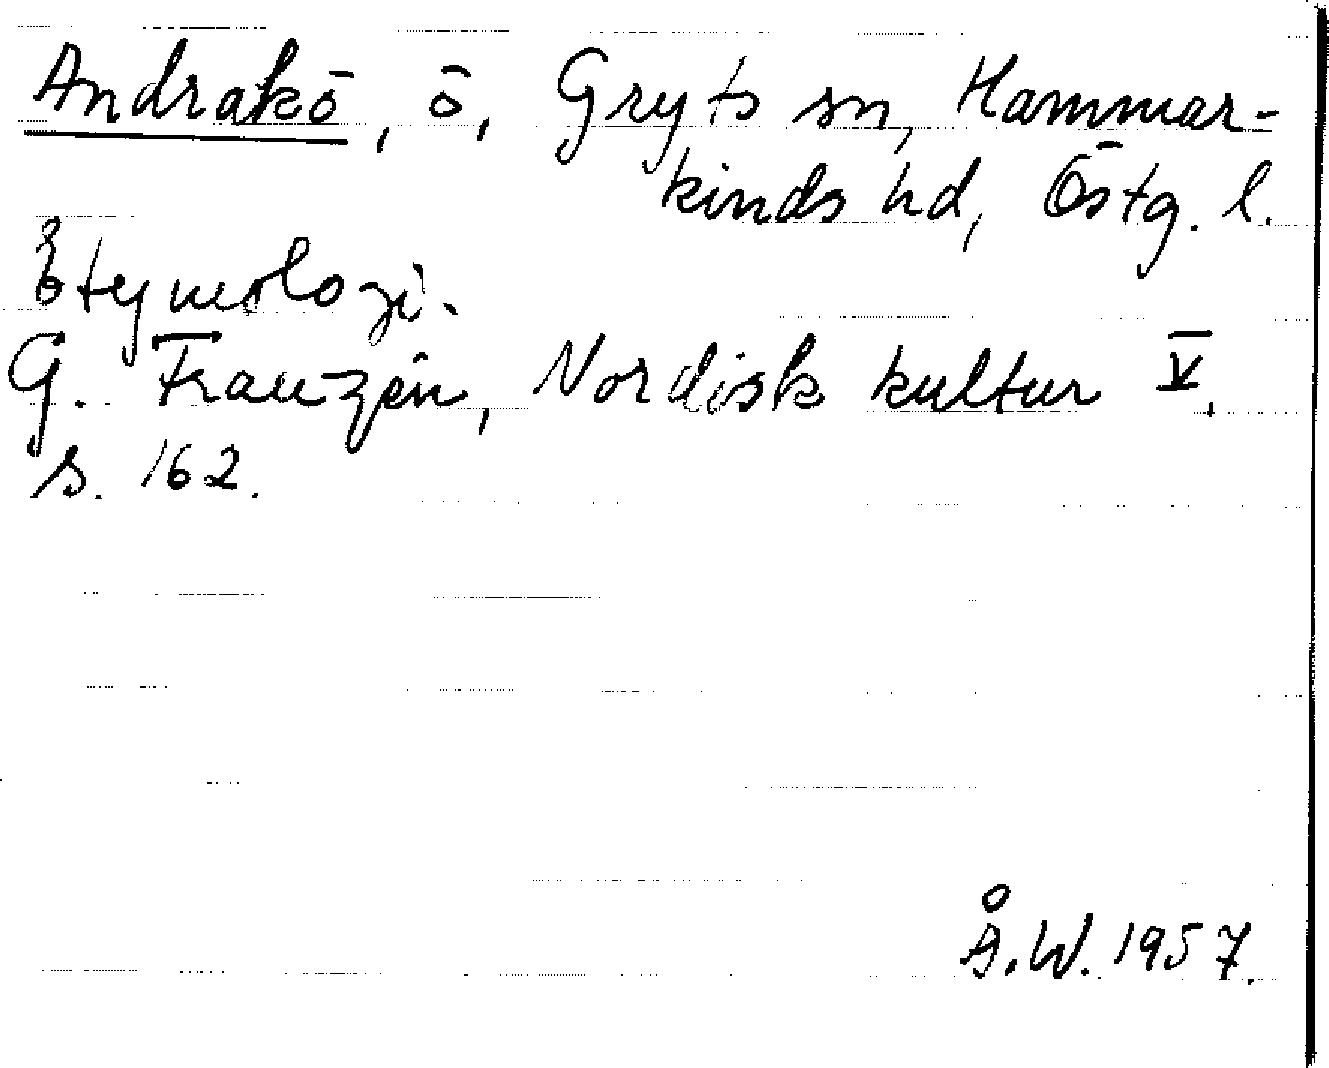 Andrakö, ö, Gryts sn, Hammar-
kinds hd, Östg. l.
Etymologi.
G. Franzén, Nordisk kultur V,
s. 162.
Å.W. 1957.